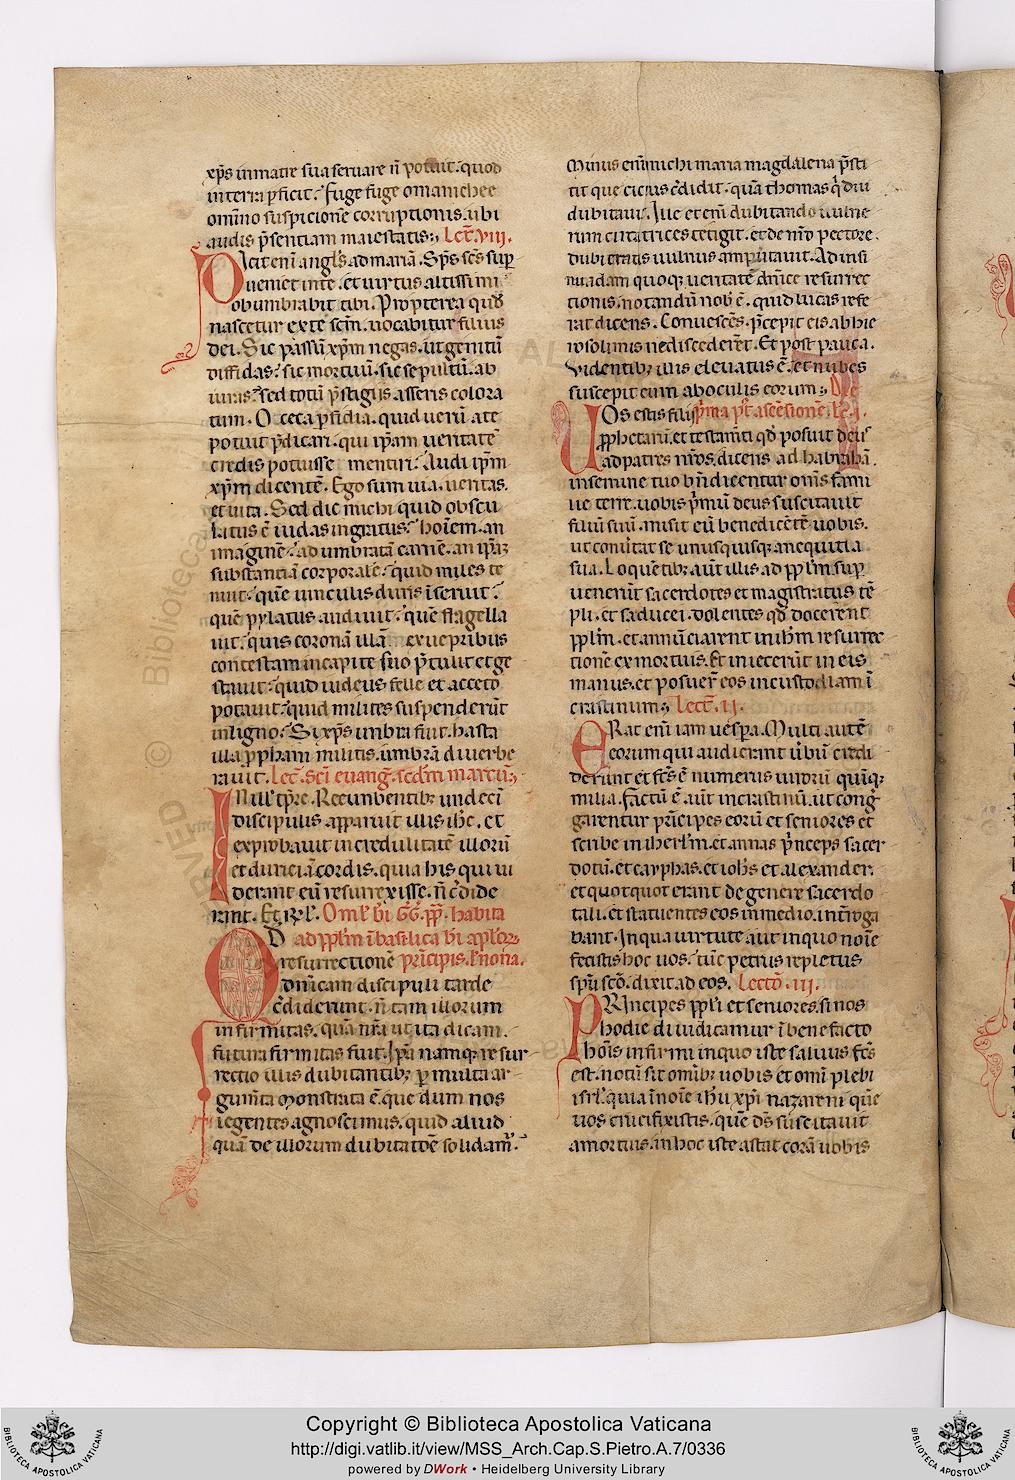 xp̄s in matre sua seruare n̄ potuit. quod
in terra p̄ficit. Fuge fuge o manichee
omnino suspicionē corruptionis. ubi
audis p̄sentiam maiestatis. Lect̄. viii.
Dicit eni angl̄s ad mariā. Sp̄s sc̄s sup̄
ueniet in te. et uirtus altissimi
obumbrabit tibi. Propterea quod
nascetur ex te scm̄. uocabitur filius
dei. Sic passū xp̄m negas. ut genitū
diffidas. sic mortuū. sic sepultū. ab
iuras. sed totū p̄stigiis asseris colora
tum. O ceca p̄fidia. quid uerū a te
potuit p̄dicari. qui ip̄am ueritatē
credis potuisse mentiri. Audi ip̄m
xp̄m dicentē. Ego sum uia. ueritas.
et uita. Sed dic michi quid obscu
ē iudas ingratus. hoīem. an
imaginē. adumbratā carnē. an
substantiā corporalē. quid miles te
nuit. quē uinculis duris
quē pylatus audiuit. quē flagella
uit. quis coronā illā ex uepribus
contextam in capite suo p̄tulit et ge
stauit. quid iudeus felle et aceto
potauit. quid milites suspenderūt
in ligno. Si xp̄s umbra fuit. hasta
illa militis. umbrā diuerbe
rauit. Lec̄. sc̄i euanḡ. scd̄m marcū.
IN illo tp̄re. Recumbentibꝫ undeci
discipulis apparuit illis ih̄c. et
exprobauit incredulitatē illorū
et duriciā cordis. quia his qui ui
derant eū resurrexisse. n̄ c̄dide
runt. Et rl̄. Oml̄ bi GG. pp̄. habita
QD ad ppl̄m ī basilica bi apl̄oꝝ
resurrectionē principis.
dn̄icam discipuli tarde
c̄diderunt. n̄ tam illorum
infirmitas. quā nr̄a ut ita dicam.
futura firmitas fuit. Ip̄a namqꝫ resur
rectio illis dubitantibꝫ p multa ar
gum̄ta monstrata ē. que dum nos
legentes agnoscimus. quid aliud
quā de illorum dubitatōe solidam̄.
Minus enī michi maria magdalena p̄sti
tit que cicius c̄didit. quā thomas qi diu
dubitauit. Ille etenī dubitando uulne
rum cicatrices tetigit. et de nr̄o pectore.
dubietatis uulnus amputauit. Ad insi
nuādam quoqꝫ ueritatē dn̄ice resurrec
tionis. notandū nob̄ ē. quid lucas refe
rat dicens. Conuescēs. p̄cepit eis ab hie
rosolimis ne discederēt. Et post pauca.
Uidentibꝫ illis eleuatus ē. et nubes
suscepit eum ab oculis eorum. Dīe
UOs estis filij p̄ma pt̄ ascēsionē. lc̄. i.
p̄phetarū. et testam̄ti qd̄ posuit deus
ad patres nr̄os. dicens ad habrahā.
in semine tuo bn̄dicentur om̄s fami
lie terre. uobis p̄mū deus suscitauit
filiū suū. misit eū benedicētē uobis.
ut conuītat se unusquisqꝫ a nequitia
sua. Loquētibꝫ aūt illis ad ppl̄m. sup̄
uenerūt sacerdotes et magistratus tē
pli. et saducei. dolentes qd̄ docerent
ppl̄m. et annūciarent in ih̄m resurrec
tionē ex mortuis. Et iniecerūt in eis
manus. et posuer̄ eos in custodiam ī
crastinum. Lect̄. ii.
ERat enī iam uesp̄a. Multi autē
eorum qui audierant ūbū credi
derunt et fc̄s ē numerus uirorū quīqꝫ
milia. Factū ē aūt in crastinū. ut conḡ
garentur prīcipes eorū et seniores et
scribe in ihrl̄m. et annas p̄nceps sacer
dotū. et cayphas. et ioh̄s et alexander.
et quotquot erant de genere sacerdo
tali. et statuentes eos in medio. int̄roga
bant. In qua uirtute aut in quo noīe
fecistis hoc uos. tūc petrus repletus
sp̄u sc̄o. dixit ad eos. Lectō. iii.
PRIncipes ppl̄i et seniores. si nos
hodie diiudicamur ī benefacto
hoīs infirmi in quo iste saluus fc̄s
est. notū sit om̄ibꝫ uobis et omī plebi
isrl̄. quia ī noīe ih̄u xp̄i nazareni quē
uos crucifixistis. quē ds̄ suscitauit
a mortuis. in hoc iste astat corā uobis
Copyright © Biblioteca Apostolica Vaticana
http://digi.vatlib.it/view/MSS_Arch.Cap.S.Pietro.A.7/0336
powered by DWork • Heidelberg University Library
BIBLIOTECA APOSTOLICA VATICANA
BIBLIOTECA APOSTOLICA VATICANA